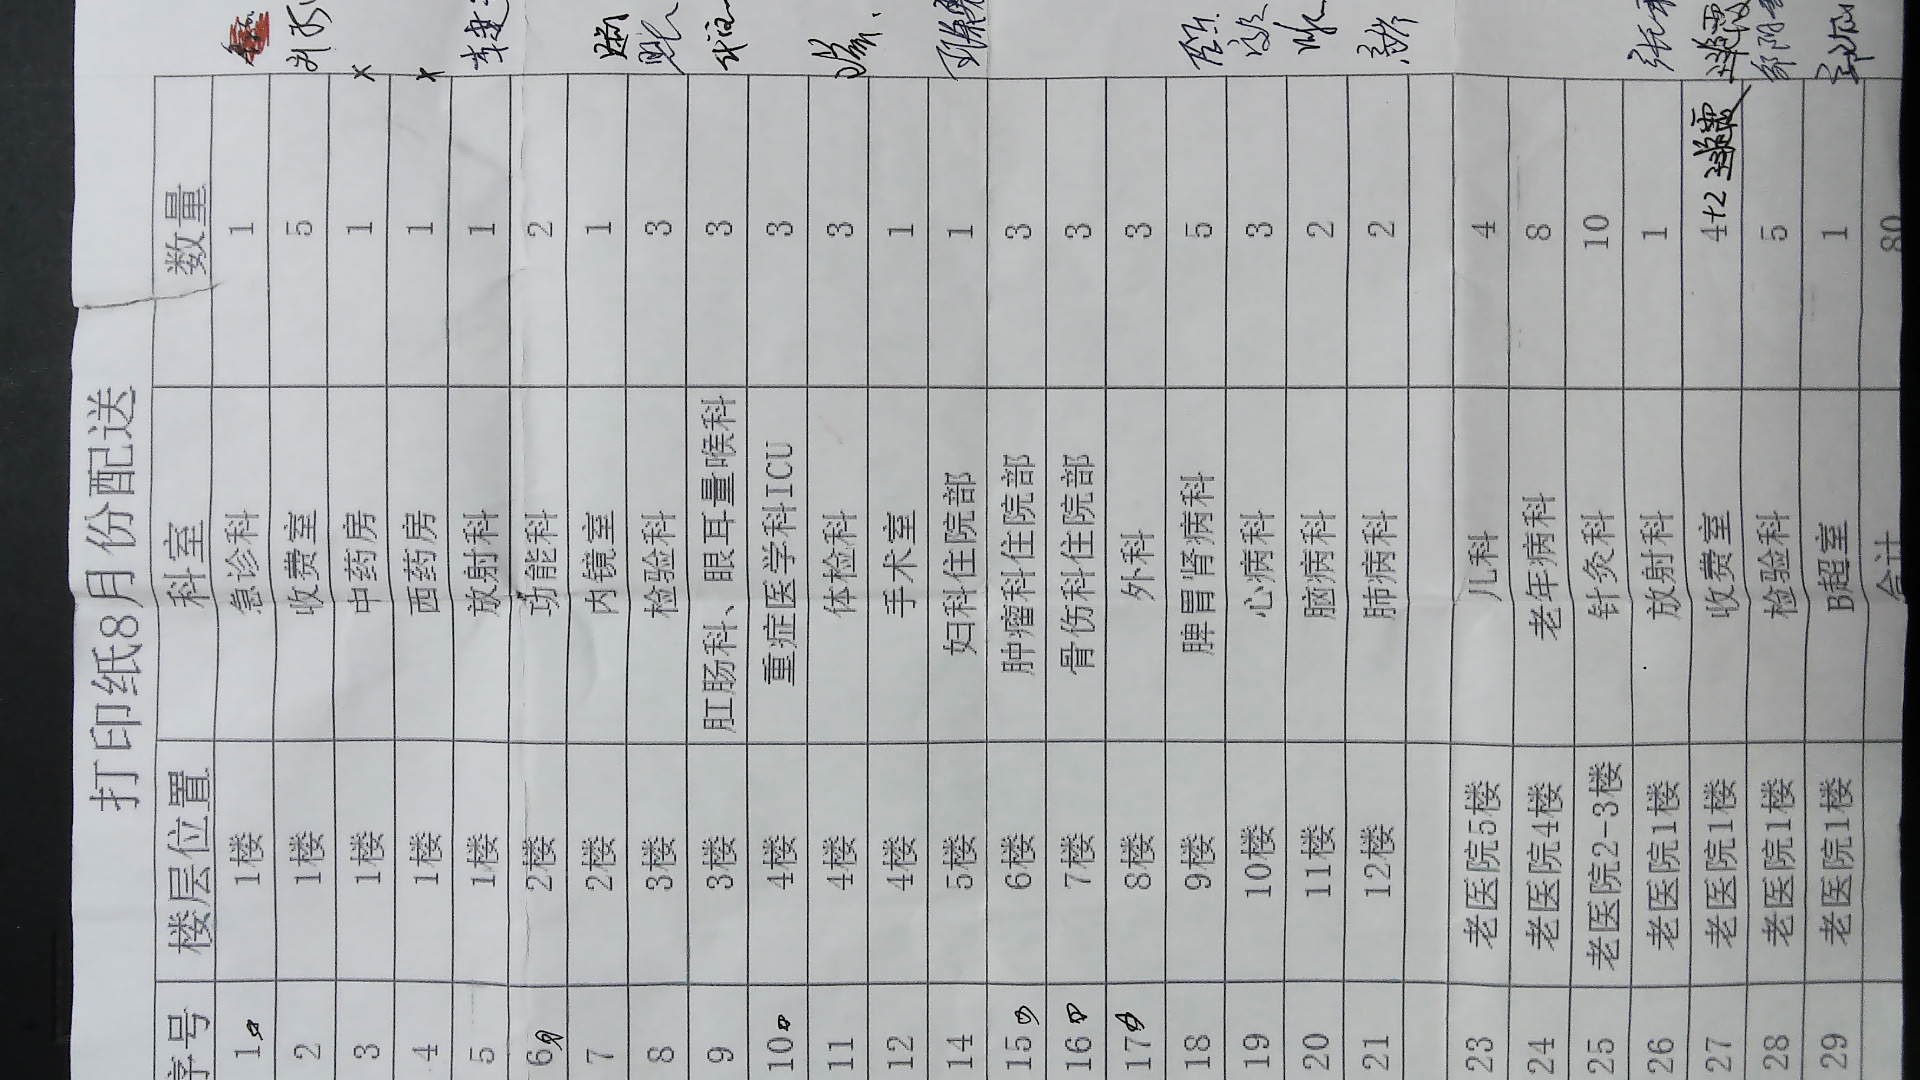 打印纸8月份配送
序号 楼层位置 科室 数量
1 1楼 急诊科 1
2 1楼 收费室 5
3 1楼 中药房 1 x
4 1楼 西药房 1 x
5 1楼 放射科 1
6 2楼 功能科 2
7 2楼 内镜室 1
8 3楼 检验科 3
9 3楼 肛肠科、眼耳量喉科 3
10 4楼 重症医学科ICU 3
11 4楼 体检科 3
12 4楼 手术室 1
14 5楼 妇科住院部 1
15 6楼 肿瘤科住院部 3
16 7楼 骨伤科住院部 3
17 8楼 外科 3
18 9楼 脾胃肾病科 5
19 10楼 心病科 3
20 11楼 脑病科 2
21 12楼 肺病科 2
23 老医院5楼 儿科 4
24 老医院4楼 老年病科 8
25 老医院2-3楼 针灸科 10
26 老医院1楼 放射科 1
27 老医院1楼 收费室 4+2
28 老医院1楼 检验科 5
29 老医院1楼 B超室 1
合计 80